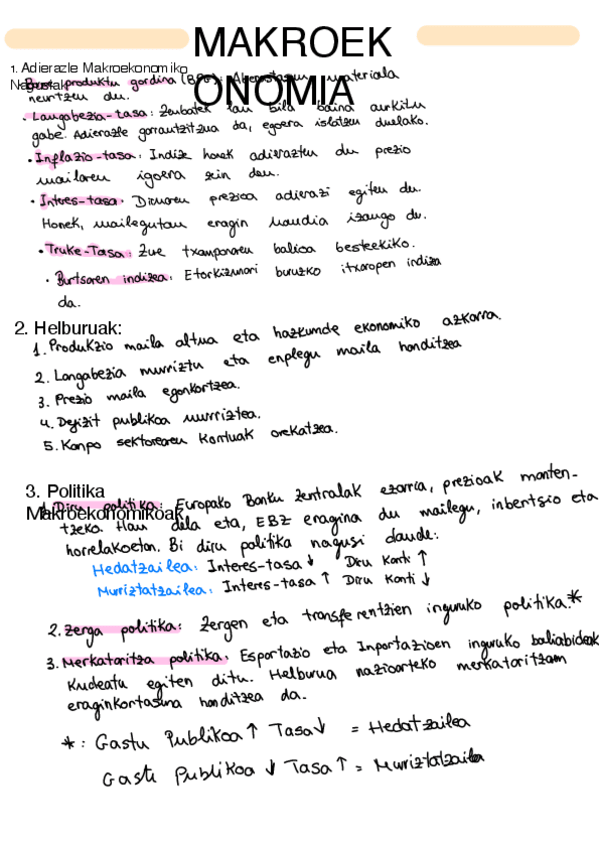 MAKROEK
ONOMIA
1. Adierazle Makroekonomiko
Nagusiak
Barne produktu gordina (BPG): Aberastasun materiala
neurtzen du.
• Langabezia-tasa: Zenbatek lan bila baina aurkitu
gabe. Adierazle garrantzitzua da, egoera islatzen duelako.
• Inflazio-tasa: Indize honek adierazten du prezio
mailaren igoera zein den.
• Interes-tasa: Diruaren prezioa adierazi egiten du.
Honek, mailegutan eragin handia izango du.
• Truke-Tasa: Zure txanponaren balioa besteekiko.
• Burtsaren indizea: Etorkizunari buruzko itxaropen indizea
da.
2. Helburuak:
1. Produkzio maila altua eta hazkunde ekonomiko azkarra.
2. Langabezia murriztu eta enplegu maila handitzea
3. Prezio maila egonkortzea.
4. Defizit publikoa murriztea.
5. Kanpo sektorearen kontuak orekatzea.
3. Politika
Makroekonomikoak
1. Diru politika: Europako Banku Zentralak ezarria, prezioak manten-
tzeko. Hau dela eta, EBZ eragina du mailegu, inbertsio eta
horrelakoetan. Bi diru politika nagusi daude:
Hedatzailea: Interes-tasa ↓ Diru Kanti ↑
Murriztatzailea: Interes-tasa ↑ Diru Kanti ↓
2. Zerga politika: Zergen eta transferentzien inguruko politika.*
3. Merkataritza politika: Esportazio eta Inportazioen inguruko baliabideak
kudeatu egiten ditu. Helburua nazioarteko merkataritzan
eraginkortasuna handitzea da.
*: Gastu Publikoa ↑ Tasa ↓ = Hedatzailea
Gastu Publikoa ↓ Tasa ↑ = Muriztatzailea